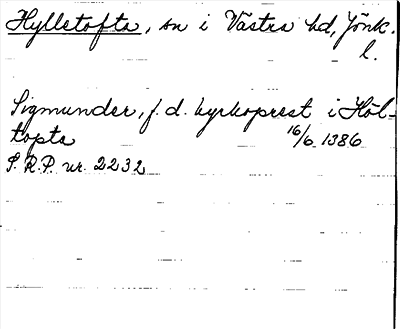 Hylletofta, sn i Västra hd, Jönk.
l.
Sigmunder, f. d. kyrkoprest i Höl-
topta 16/6 1386
S. R. P. nr. 2232